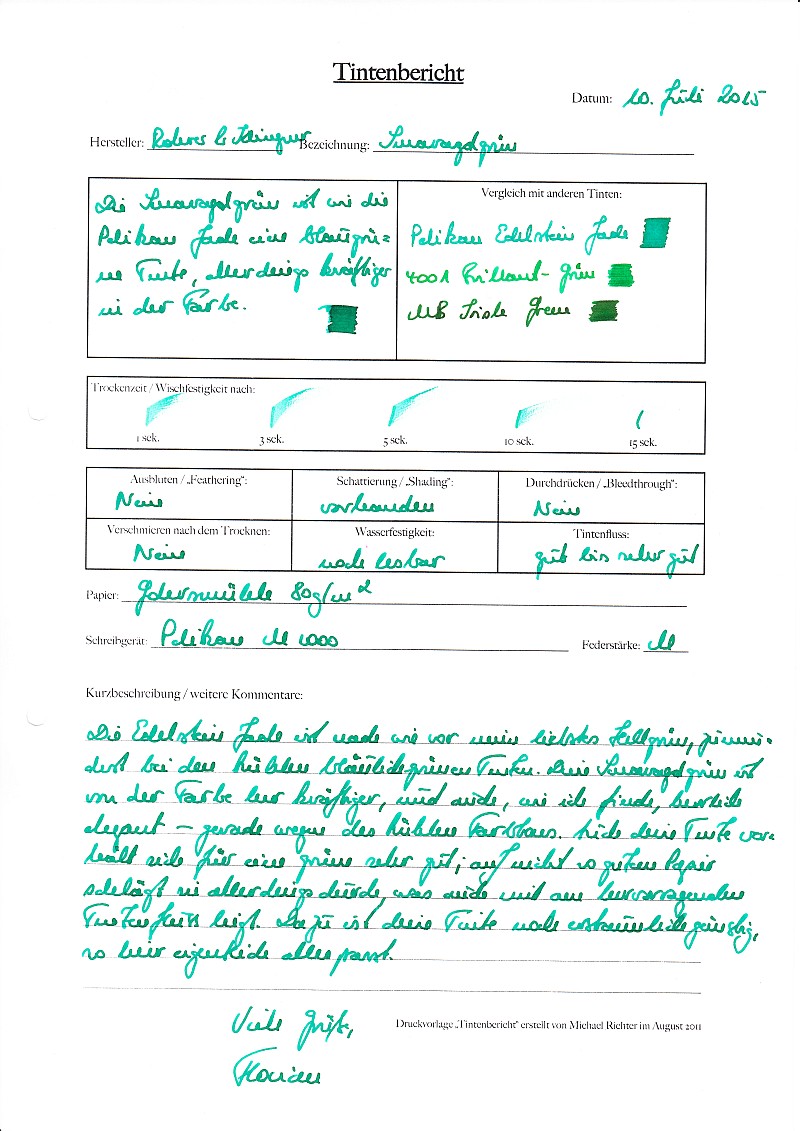 Tintenbericht
Datum: 10. Juli 2015
Hersteller: Rohrer & Klingner Bezeichnung: Smaragdgrün
Die Smaragdgrün ist wie die
Pelikan Jade eine blaugrü-
ne Tinte, allerdings kräftiger
in der Farbe.
Vergleich mit anderen Tinten:
Pelikan Edelstein Jade
4001 Brillant-Grün
MB Irish Green
Trockenzeit / Wischfestigkeit nach:
1 sek. 3 sek. 5 sek. 10 sek. 15 sek.
Ausbluten / „Feathering": Schattierung / „Shading": Durchdrücken / „Bleedthrough":
Nein vorhanden Nein
Verschmieren nach dem Trocknen: Wasserfestigkeit: Tintenfluss:
Nein noch lesbar gut bis sehr gut
Papier: 80g/m²
Schreibgerät: Pelikan M 1000 Federstärke: M
Kurzbeschreibung / weitere Kommentare:
Die Edelstein Jade ist nach wie vor mein liebstes Hellgrün, zumin-
dest bei den kühlen bläulichgrünen Tinten. Die Smaragdgrün ist
von der Farbe her kräftiger, und auch, wie ich finde, herrlich
elegant – gerade wegen des kühlen Farbtons. Die Tinte ver-
hält sich für eine grüne sehr gut; auf nicht so gutem Papier
schlägt sie allerdings durch, was auch mit am hervorragenden
Tintenfluss liegt. Dazu ist diese Tinte noch erstaunlich günstig,
so hier eigentlich alles passt.
Viele Grüße,
Florian
Druckvorlage „Tintenbericht" erstellt von Michael Richter im August 2011